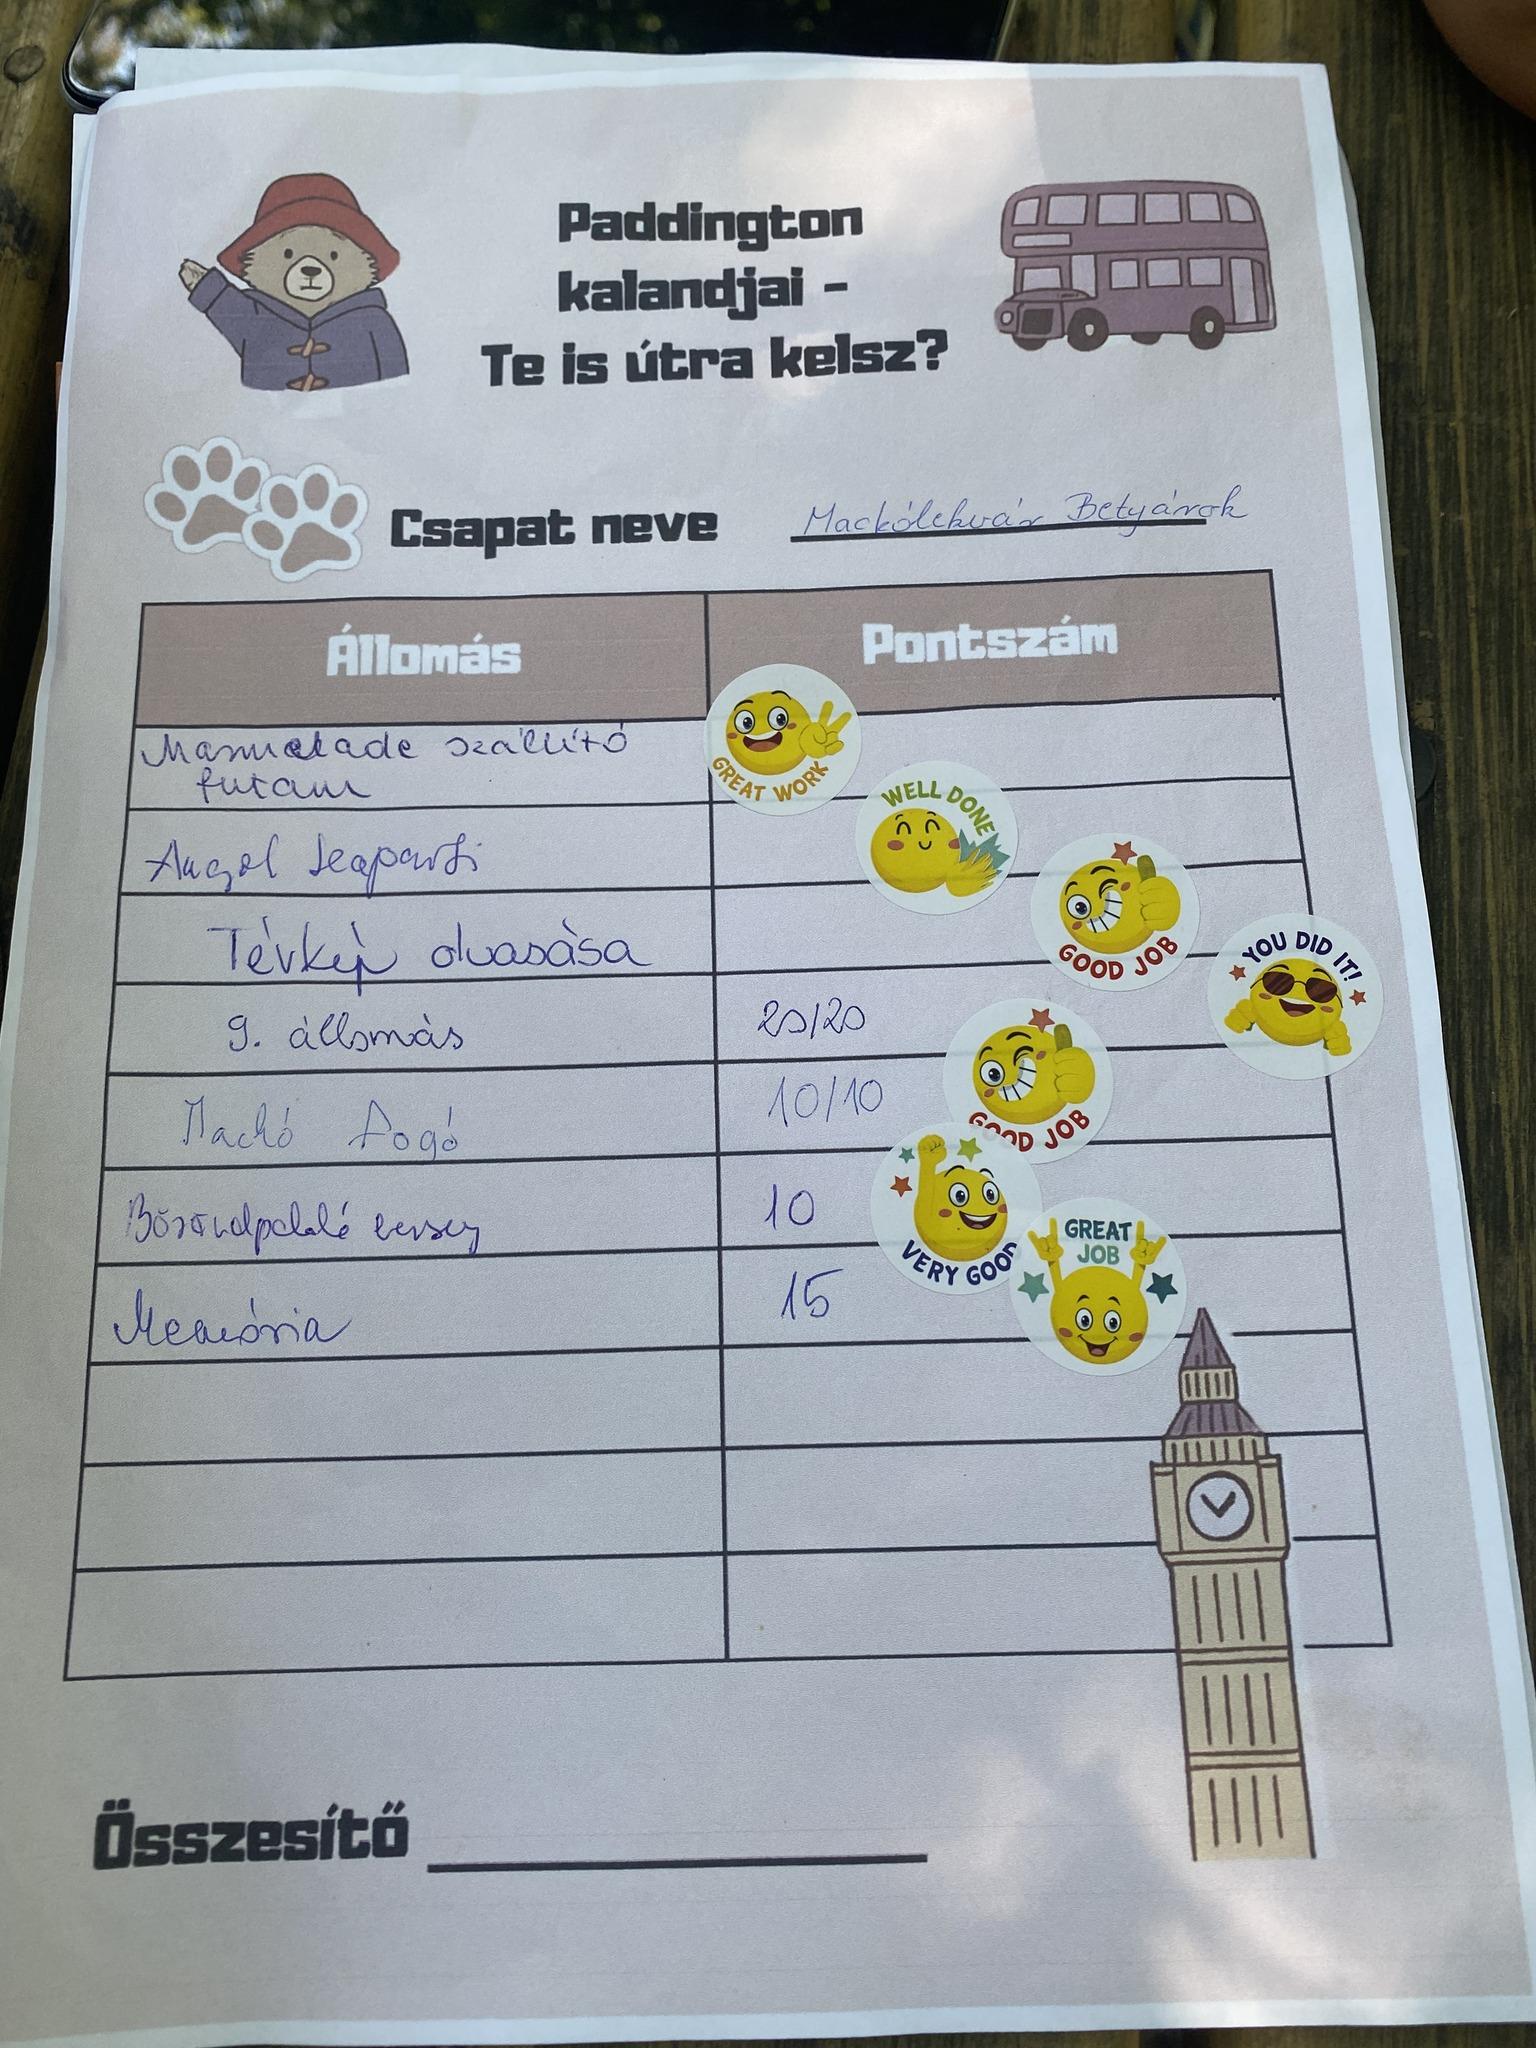 Paddington
kalandjai -
Te is útra kelsz?
Csapat neve Mackólekvár Betyárok
Állomás Pontszám
Marmelade szállító
futam
GREAT WORK
Angol teaparti
WELL DONE
Térkép olvasása
GOOD JOB
YOU DID IT!
9. állomás 20/20
Mackó Fogó 10/10
GOOD JOB
10
VERY GOOD
GREAT
JOB
Memória 15
Összesítő